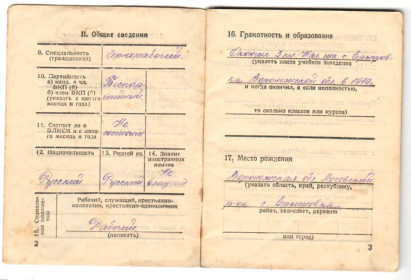 II. Общие сведения
9. Специальность
(гражданская)
Чернорабочий
10. Партийность
а) канд. и чл.
ВКП (б)
б) член ВКП (б)
(указать с какого
месяца и года)
Беспартийный
11. Состоит ли в
ВЛКСМ и с како-
го месяца и года
Не состоит
12. Национальность
Русский
13. Родной яз.
Русский
14. Знание
иностранных
языков
Не владеет
15. Социальное
положение
Рабочий, служащий, крестьянин-
колхозник, крестьянин-единоличник
Рабочий
(написать)
2
16. Грамотность и образование
Воронежской обл. в 1910 г.
(указать какое учебное заведение
и когда окончил, а если неполностью,
то сколько классов или курсов)
17. Место рождения
Воронежская обл.
(указать область, край, республику,
р-он с.
район, сельсовет, деревню
или город)
3